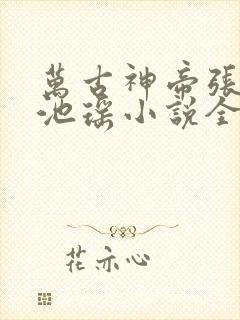 萬古神帝張
池瑤小說全
花亦心